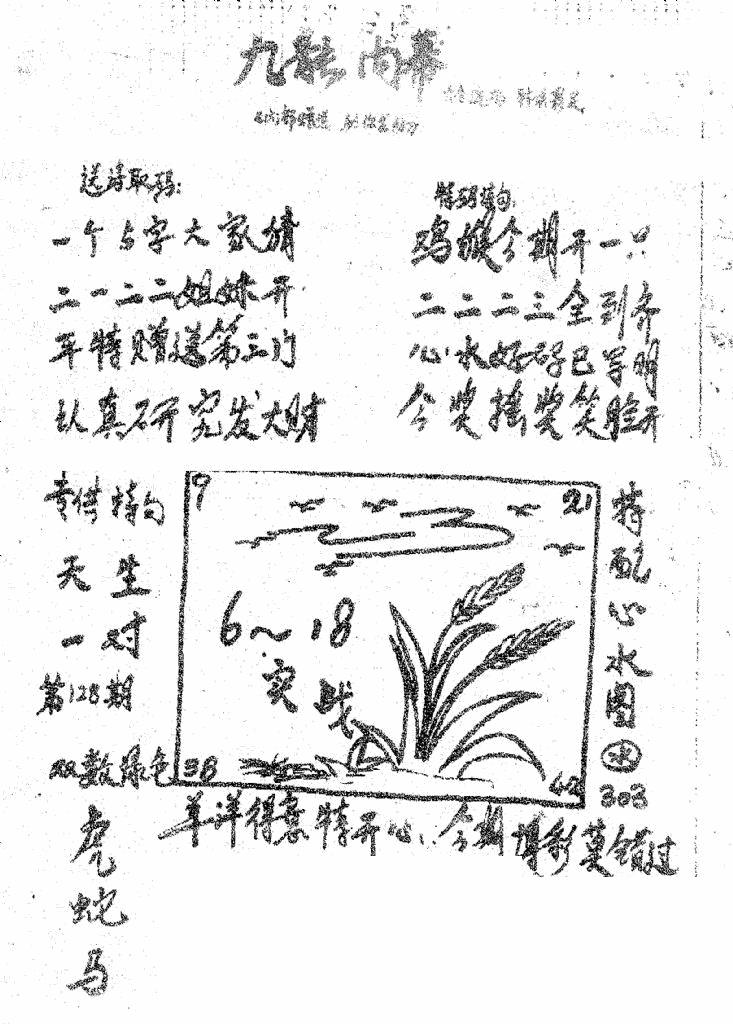 九龍内幕
送诗取码:
一个与字大家猜
二一二二姐妹开
年特赠送第三门
认真研究发大财
特码诗句:
鸡猴今期开一只
二二二三全到齐
心水好码已写明
今奖摇奖笑脸开
专供特句
天生
一对
第128期
双数绿色
虎
蛇
马
9
21
6~18
实战
38
42
特配心水图
水
303
羊洋得意特开心、今期博彩莫错过